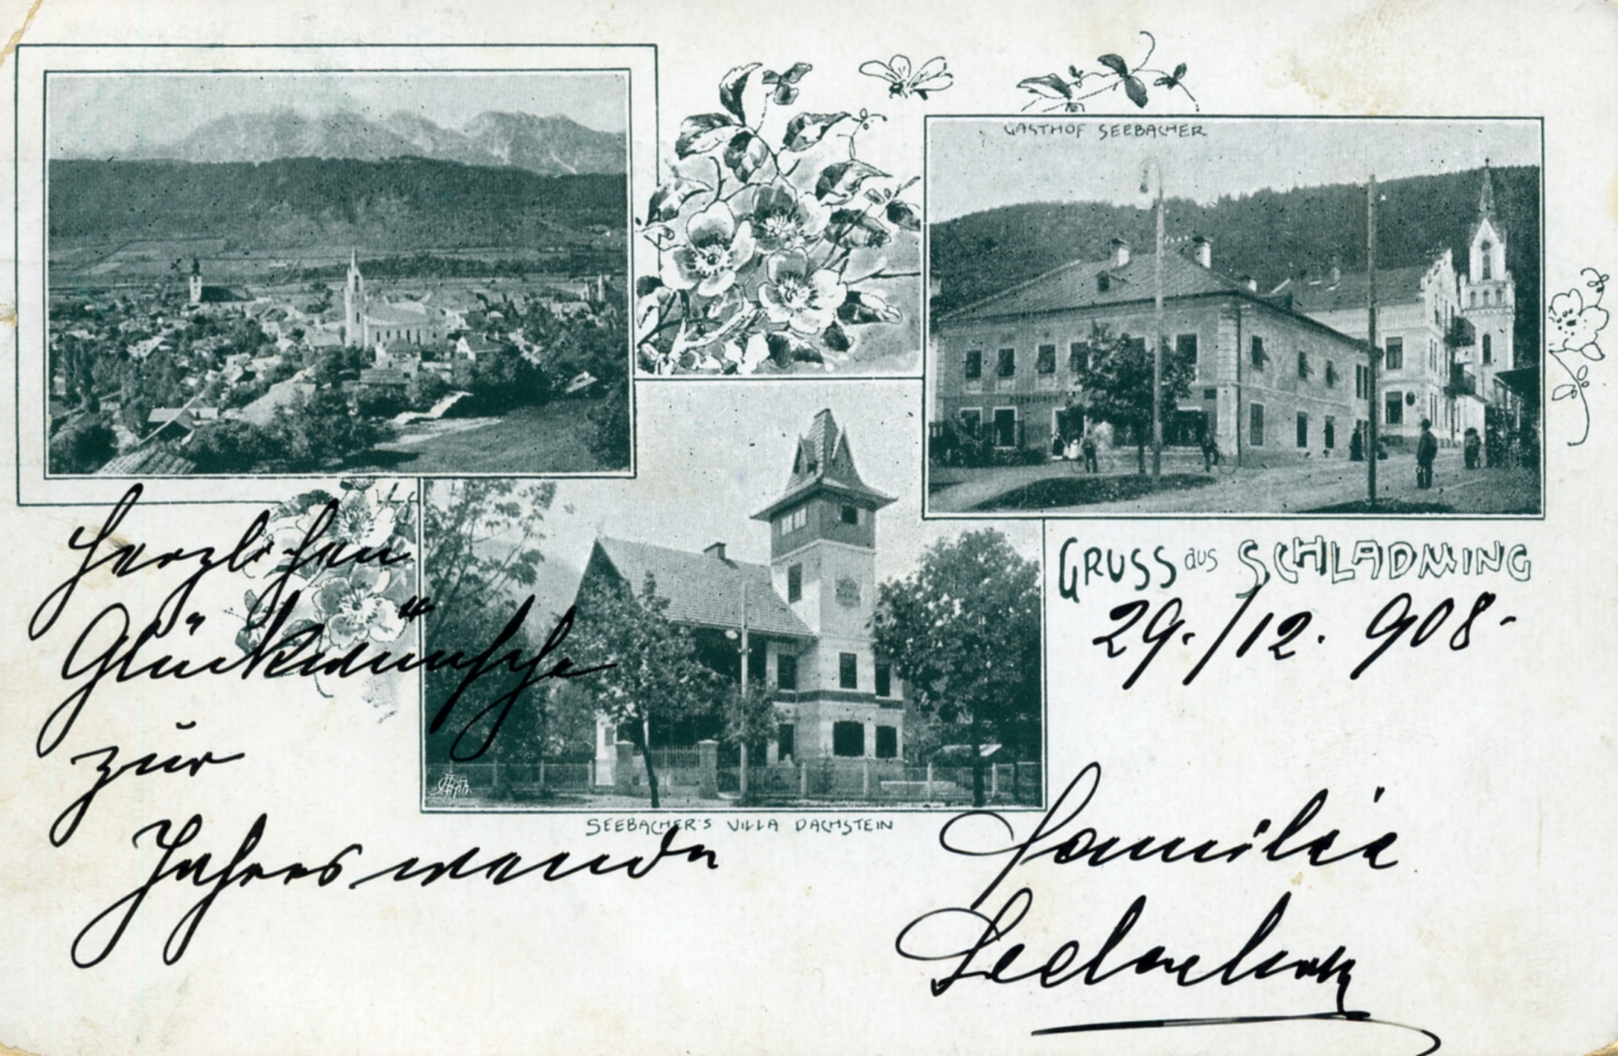 GASTHOF SEEBACHER
SEEBACHER
GRUSS aus SCHLADMING
29./12. 908.
Herzlichen
Glückwünsche
zur
Jahreswende
SEEBACHER'S VILLA DACHSTEIN
Familie